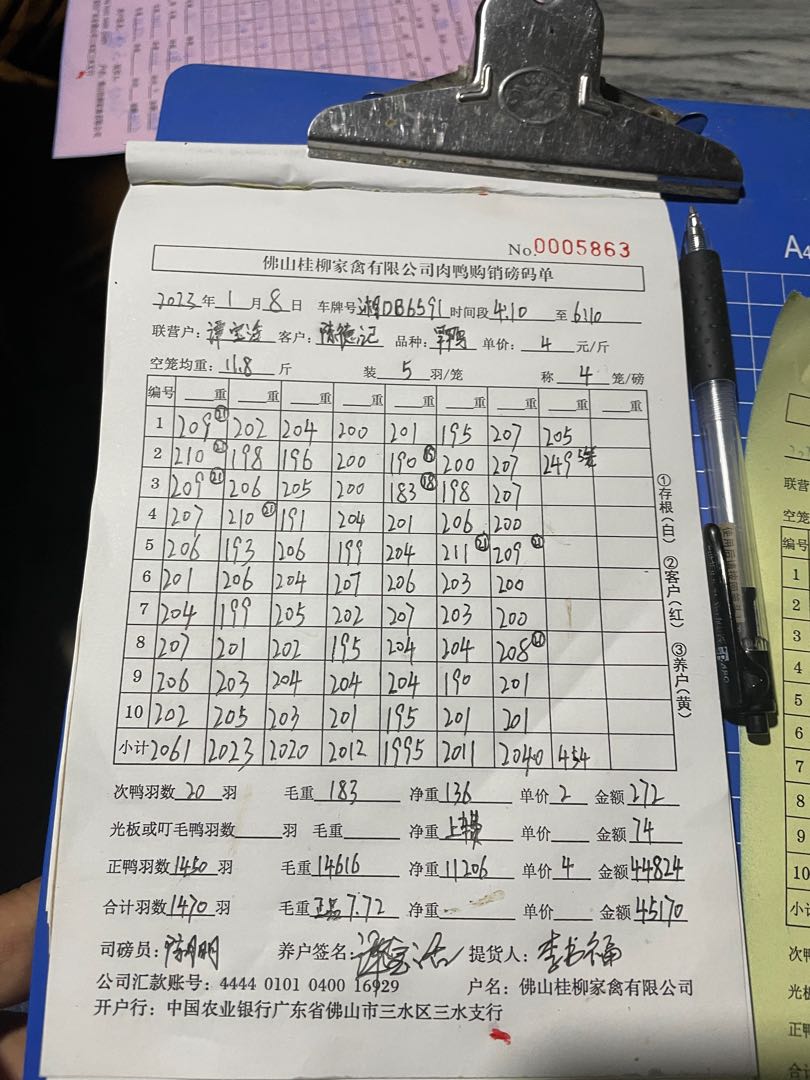 No.0005863
佛山桂柳家禽有限公司肉鸭购销磅码单
2023年 1 月 8 日 车牌号 湘DB6591 时间段 4:10 至 6:10
联营户: 客户: 陈德记 品种: 单价: 4 元/斤
空笼均重: 11.8 斤 装 5 羽/笼 称 4 笼/磅
编号 重 重 重 重 重 重 重 重 重
1 209 21 202 204 200 201 195 207 205
2 210 21 198 196 200 190 200 207 249 5笼
3 209 21 206 205 200 183 18 198 207
4 207 210 21 191 204 201 206 200
5 206 193 206 199 204 211 21 209 21
6 201 206 204 207 206 203 200
7 204 199 205 202 207 203 200
8 207 201 202 195 204 204 208 21
9 206 203 204 204 204 190 201
10 202 205 203 201 195 201 201
小计 2061 2023 2020 2012 1995 2011 2040 454
次鸭羽数 20 羽 毛重 183 净重 136 单价 2 金额 272
光板或叮毛鸭羽数 羽 毛重 净重 单价 金额 74
正鸭羽数 1450 羽 毛重 14616 净重 11206 单价 4 金额 44824
合计羽数 1470 羽 毛重 正品 7.72 净重 单价 金额 45170
司磅员: 养户签名: 提货人: 李书福
公司汇款账号: 4444 0101 0400 16929 户名: 佛山桂柳家禽有限公司
开户行: 中国农业银行广东省佛山市三水区三水支行
①存根(白) ②客户(红) ③养户(黄)
A4
联营
空笼
编号
1
2
3
4
5
6
7
8
9
10
小计
次鸭
光板
正鸭
合计